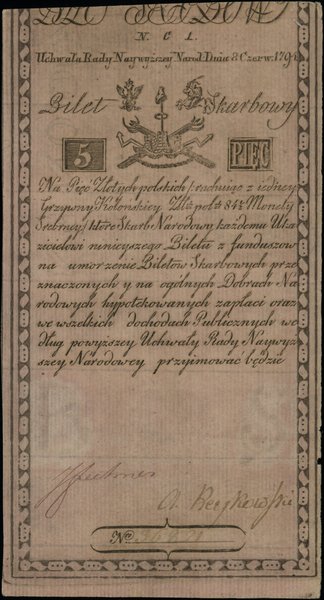 N. C. 1.
Uchwała Rady Naywyzszey Narod: Dnia 8 Czerw. 1794
Bilet Skarbowy
5 PIĘC
Na Pięc Złotych polskich rachuiąc z iedney
Grzywny Kolonskiey Zł: pol: 84½ Monety
Srebrney, ktore Skarb Narodowy każdemu Uka
zicielowi ninieyszego Biletu z funduszow
na umorzenie Biletów Skarbowych prze
znaczonych y na ogolnych Dobrach Na
rodowych hypotekowanych zapłaci oraz
we wszelkich dochodach Publicznych we
dług powyzszey Uchwały Rady Naywyz
szey Narodowey przyimować będzie
A. Reykowski
No